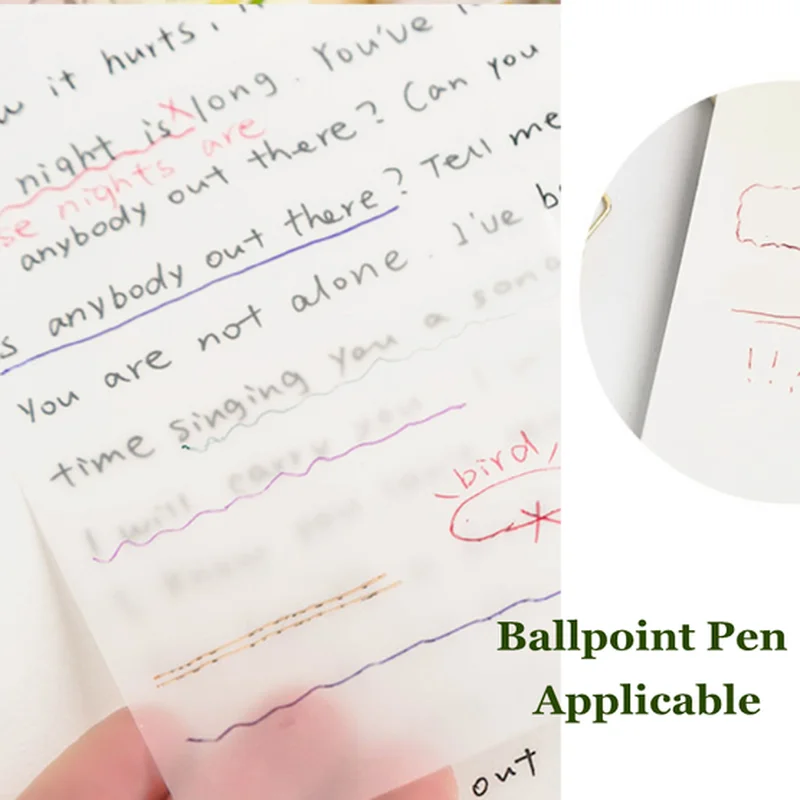 it hurts,
night is long. You've
se nights are
anybody out there? Can you
s anybody out there? Tell me
You are not alone. I've b
time singing you a song
I will carry you I'
I know you
bird
!!
out
Ballpoint Pen
Applicable